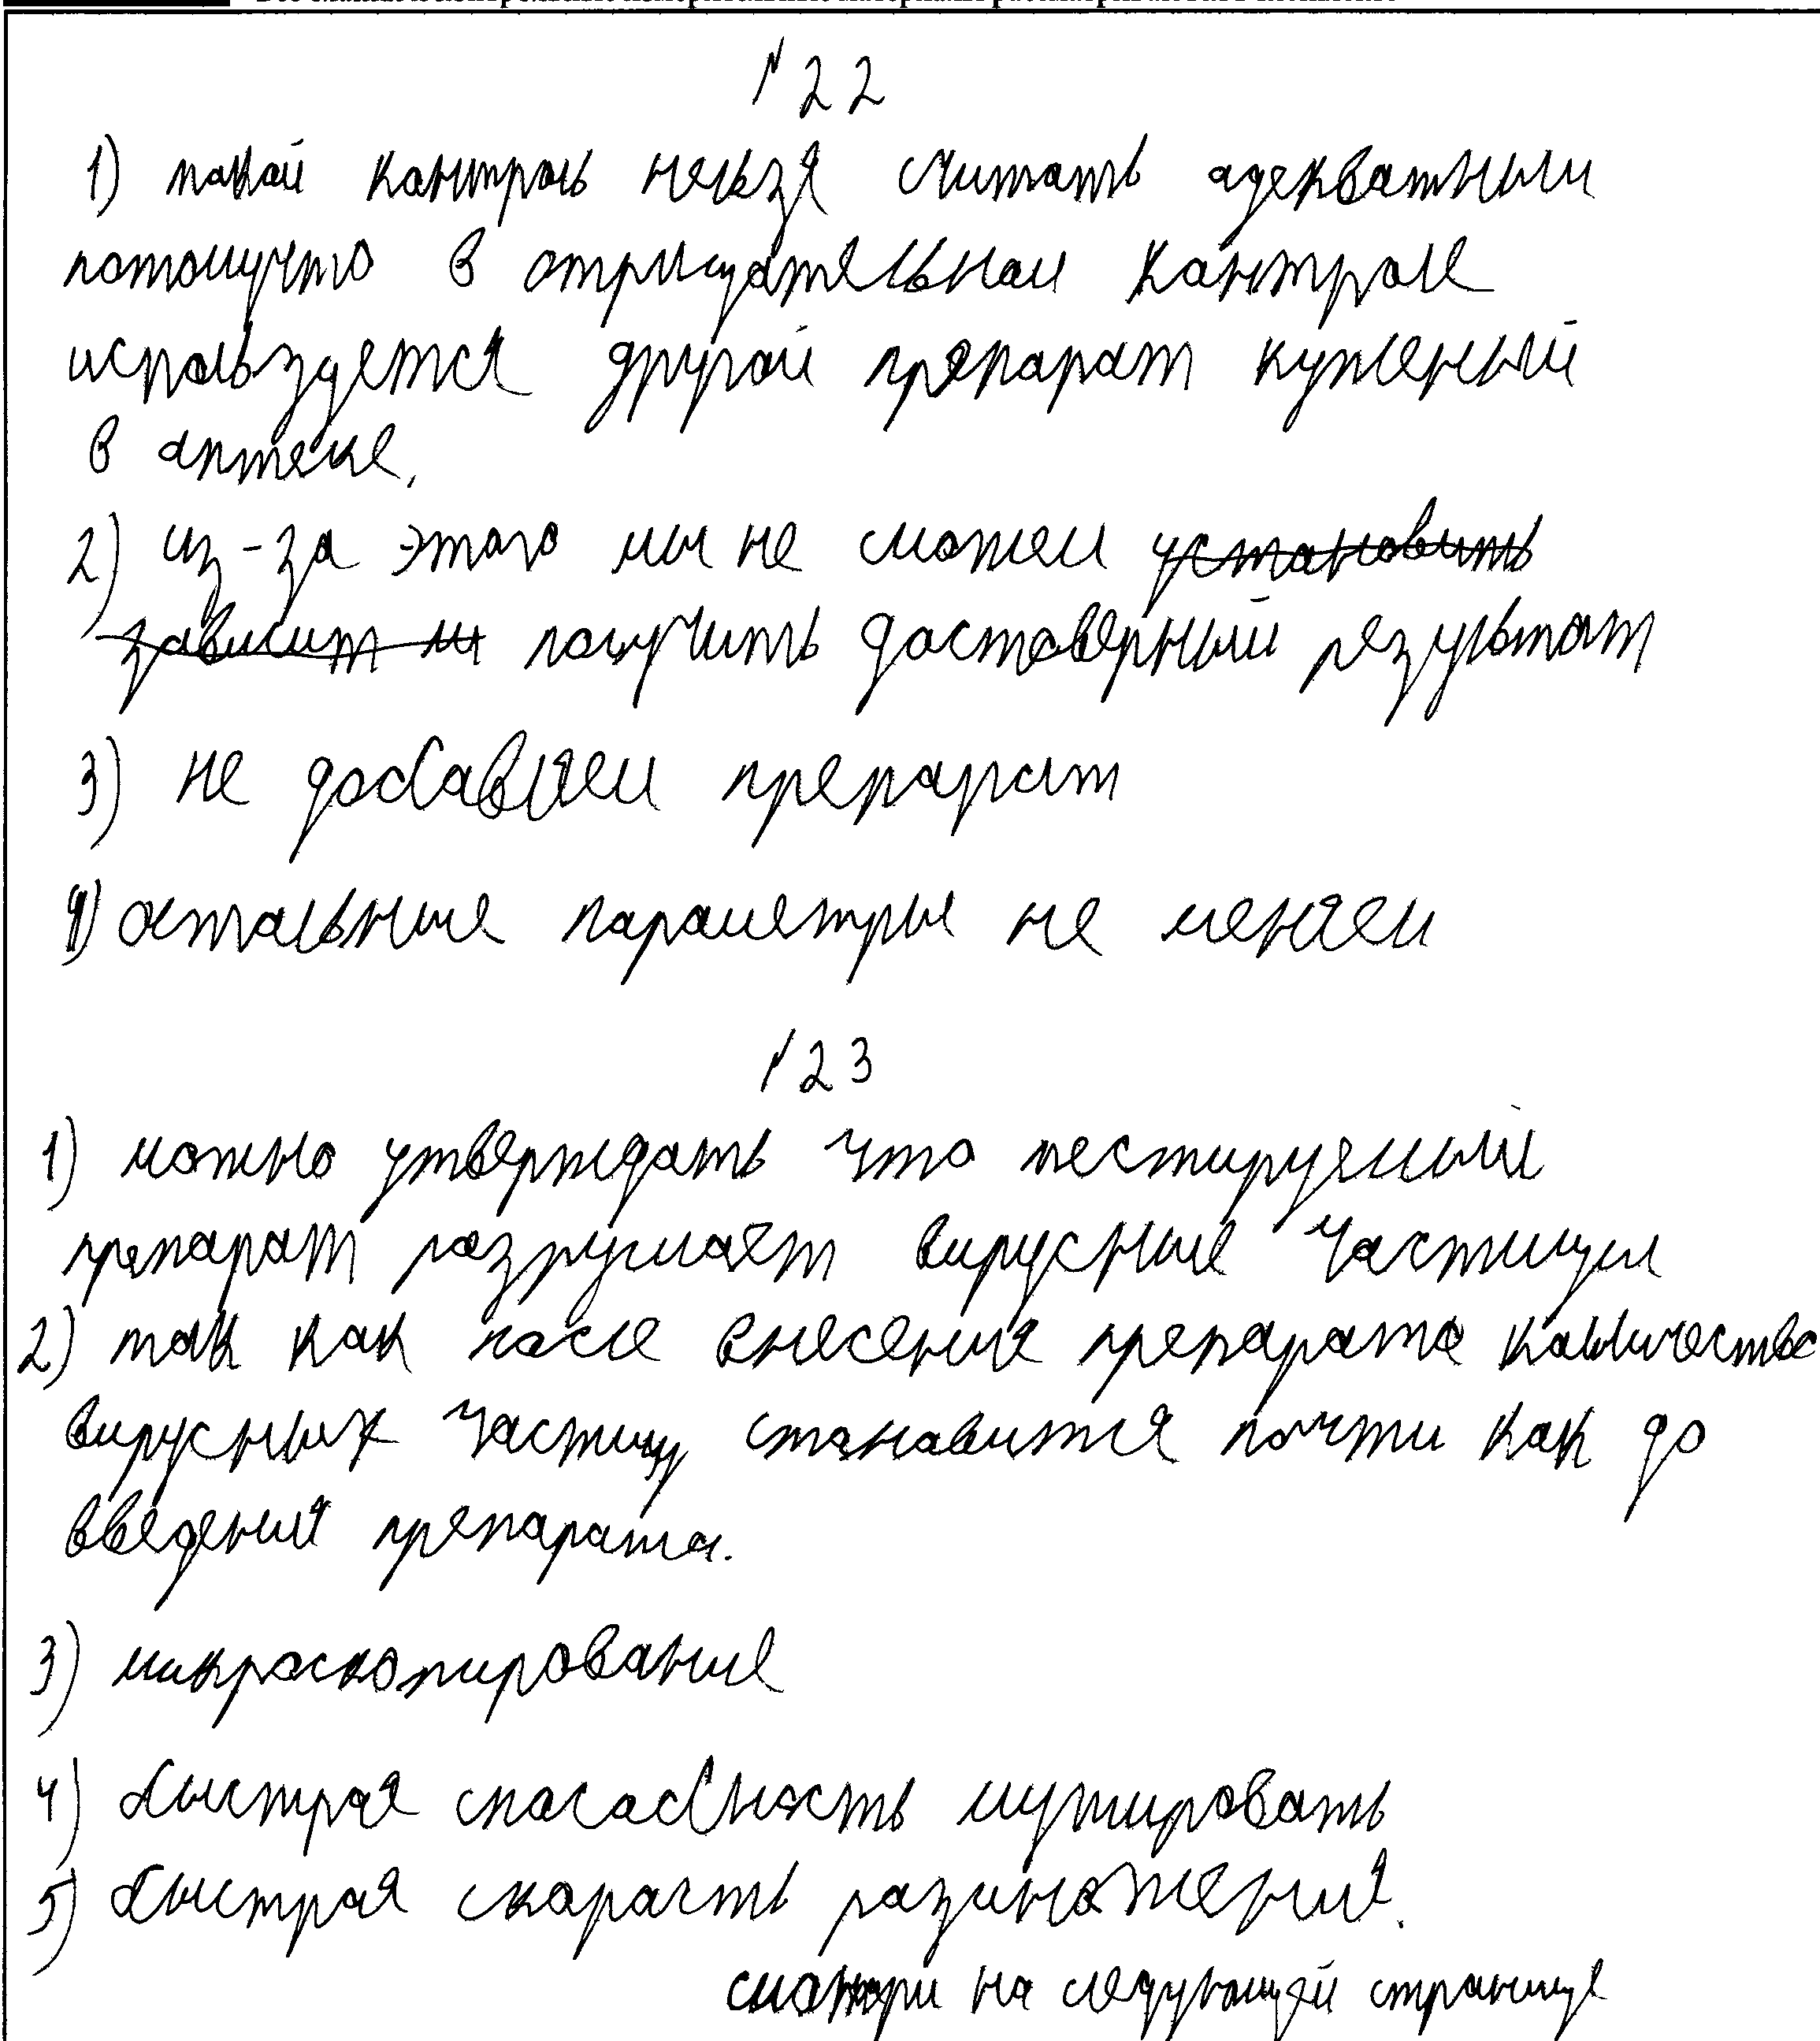 №22
1) такой контроль нельзя считать адекватным
потомучто в отрицательном контроле
использется другой препарат купленый
в аптеке.
2) из-за этого мы не можем установить
зависит ли получить достоверный результат
3) не добавляем препарат
4) остальные параметры не меняем
№23
1) можно утверждать что тестируемый
препарат разрушает вирусные частицы
2) так как после внесения препарата количество
вирусных частиц становится почти как до
введения препарата.
3) микроскопирование
4) быстрая способность мутировать
5) быстрая скорасть размножения.
смотри на следующей странице